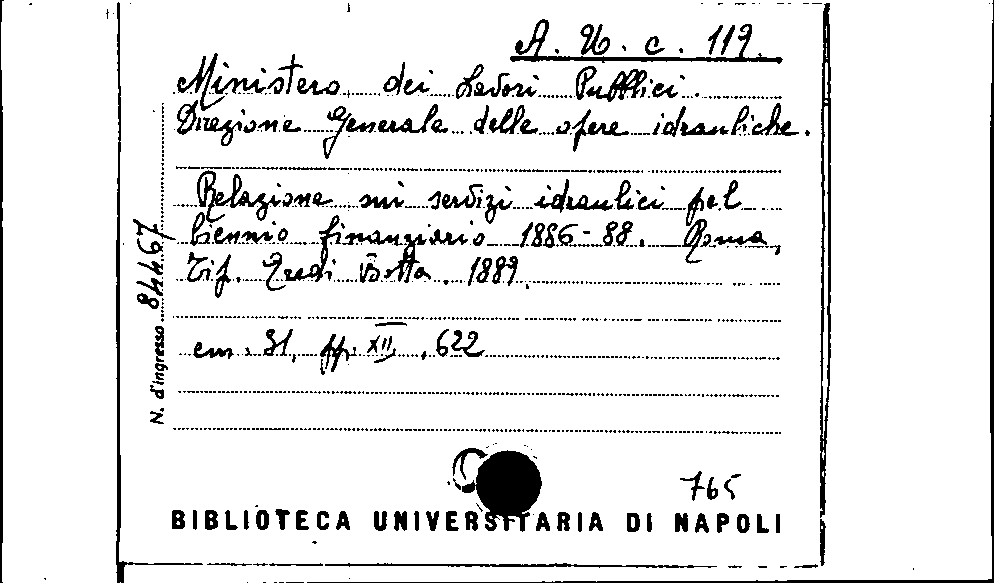 A. U. c. 119.
Ministero dei Lavori Pubblici.
Direzione Generale delle opere idrauliche.
Relazione sui servizi idraulici pel
biennio finanziario 1886-88. Roma,
Tip. Eredi Botta. 1889.
cm. 31, pp. XII, 622
N. d'ingresso 84467
765
BIBLIOTECA UNIVERSITARIA DI NAPOLI